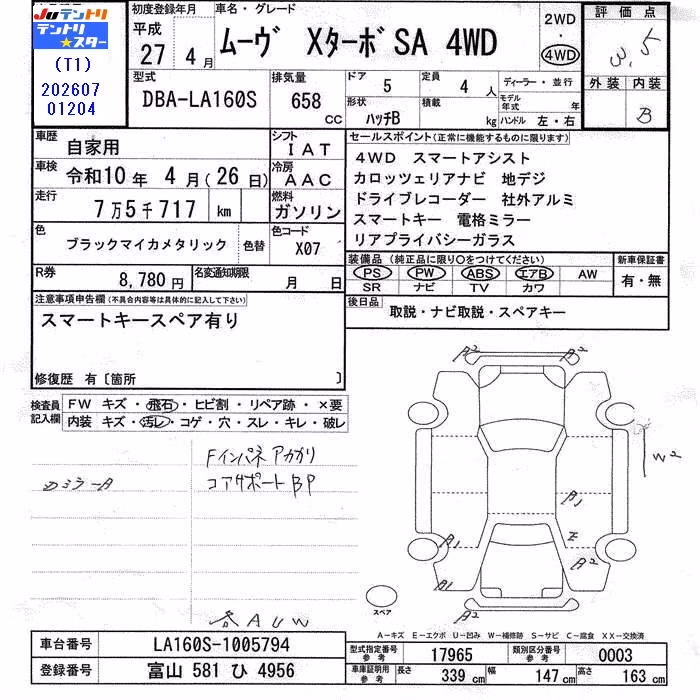 Juテントリ
テントリ
★スター
(T1)
202607
01204
初度登録年月
平成
27 4月
車名・グレード
ムーヴ XターボSA 4WD
2WD
・
4WD
評価点
3.5
外装 内装
B
型式
DBA-LA160S
排気量
658 cc
ドア
5
定員
4人
形状
ハッチB
積載
kg
ディーラー・並行
モデル年式 年
ハンドル 左・右
車歴 自家用
シフト IAT
車検 令和10年 4月(26日)
冷房 AAC
走行 7万5千717 km
燃料 ガソリン
色 ブラックマイカメタリック 色替
色コード X07
R券 8,780円
名変通知期限 月 日
セールスポイント(正常に機能するものに限ります)
4WD スマートアシスト
カロッツェリアナビ 地デジ
ドライブレコーダー 社外アルミ
スマートキー 電格ミラー
リアプライバシーガラス
装備品(純正品に限り○をつけてください)
PS PW ABS エアB AW
SR ナビ TV カワ
新車保証書
有・無
後日品 取説・ナビ取説・スペアキー
注意事項申告欄(不具合内容等は具体的に記入して下さい)
スマートキースペア有り
修復歴 有〔箇所 〕
検査員記入欄
FW キズ・飛石・ヒビ割・リペア跡・×要
内装 キズ・汚レ・コゲ・穴・スレ・キレ・破レ
Fインパネ アカガリ
コアサポートBP
ミラーA
各AUW
A2
A2
W2
A1
A1
A1
A2
スペア
A-キズ E-エクボ U-凹み W-補修跡 S-サビ C-腐食 XX-交換済
車台番号 LA160S-1005794
登録番号 富山 581 ひ 4956
型式指定番号 参考 17965
類別区分番号 参考 0003
車庫証明用 参考 長さ 339cm 幅 147cm 高さ 163cm